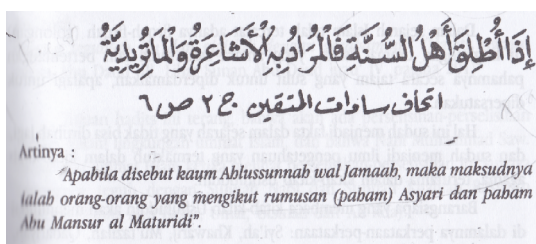 إِذَا أُطْلِقَ أَهْلُ السُّنَّةِ فَالْمُرَادُ بِهِ الْأَشَاعِرَةُ وَالْمَاتُرِيدِيَّةُ
اتحاف سادات المتقين ج ٢ ص ٦
Artinya :
"Apabila disebut kaum Ahlussunnah wal Jamaah, maka maksudnya
ialah orang-orang yang mengikut rumusan (paham) Asyari dan paham
Abu Mansur al Maturidi".